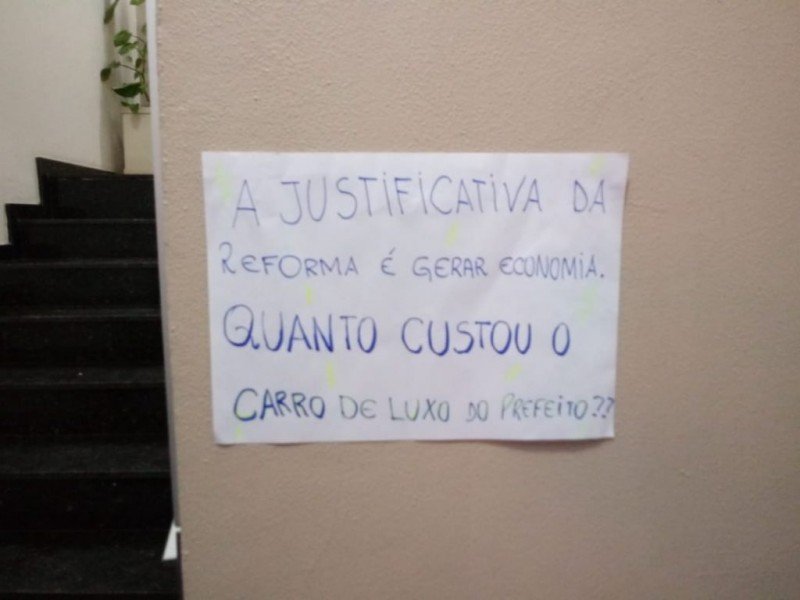 A JUSTIFICATIVA DA
REFORMA É GERAR ECONOMIA.
QUANTO CUSTOU O
CARRO DE LUXO DO PREFEITO??